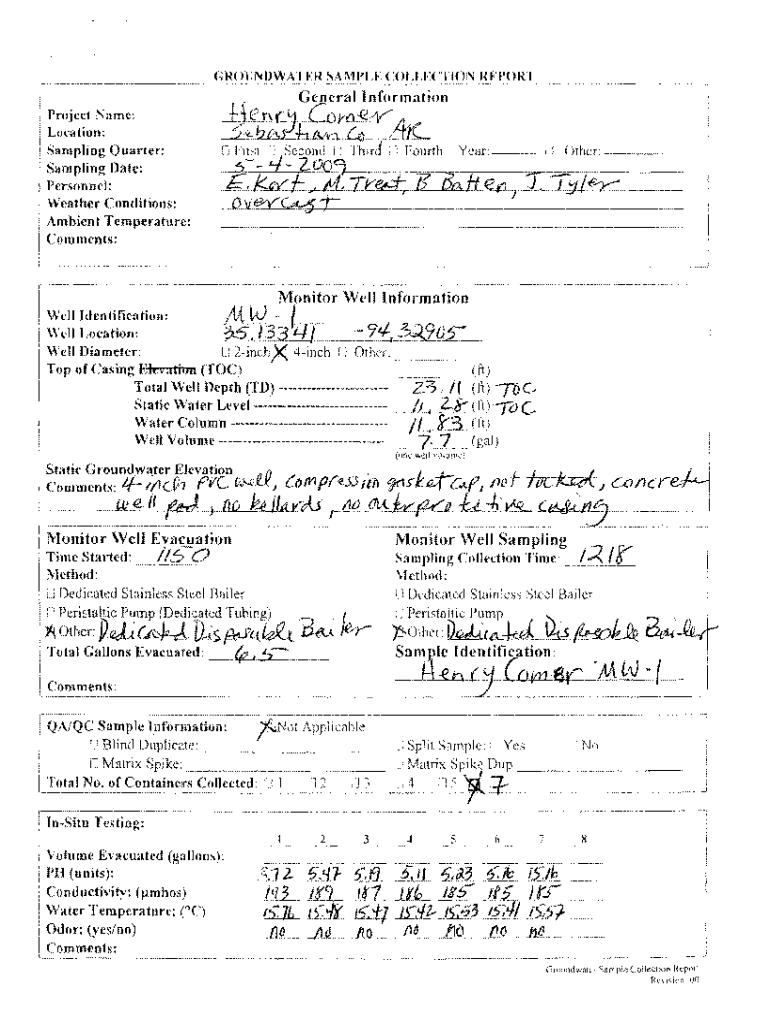 GROUNDWATER SAMPLE COLLECTION REPORT
General Information
Project Name: Henry Comer
Location: Sebastian Co, AR
Sampling Quarter: First Second Third Fourth Year: Other:
Sampling Date: 5-4-2009
Personnel: E. Kort, M. Treat, B Batten, J. Tyler
Weather Conditions: Overcast
Ambient Temperature:
Comments:
Monitor Well Information
Well Identification: MW-1
Well Location: 35.13341 -94.32905
Well Diameter: 2-inch X 4-inch Other:
Top of Casing Elevation (TOC) (ft)
Total Well Depth (TD) 23.11 (ft) TOC
Static Water Level 11.28 (ft) TOC
Water Column 11.83 (ft)
Well Volume 7.7 (gal)
(one well volume)
Static Groundwater Elevation
Comments: 4-inch PVC well, compression gasket cap, not locked, concrete
well pad, no bollards, no outer protective casing
Monitor Well Evacuation Monitor Well Sampling
Time Started: 1150 Sampling Collection Time: 1218
Method: Method:
Dedicated Stainless Steel Bailer Dedicated Stainless Steel Bailer
Peristaltic Pump (Dedicated Tubing) Peristaltic Pump
X Other: Dedicated Disposable Bailer X Other: Dedicated Disposable Bailer
Total Gallons Evacuated: 6.5 Sample Identification:
Henry Comer MW-1
Comments:
QA/QC Sample Information: X Not Applicable
Blind Duplicate: Split Sample: Yes No
Matrix Spike: Matrix Spike Dup
Total No. of Containers Collected: 1 2 3 4 5 7
In-Situ Testing:
1 2 3 4 5 6 7 8
Volume Evacuated (gallons):
PH (units): 5.72 5.47 5.19 5.11 5.23 5.16 15.16
Conductivity: (µmhos) 193 189 187 186 185 185 185
Water Temperature: (°C) 15.76 15.48 15.47 15.42 15.53 15.41 15.57
Odor: (yes/no) no no no no no no no
Comments:
Groundwater Sample Collection Report
Revision 00